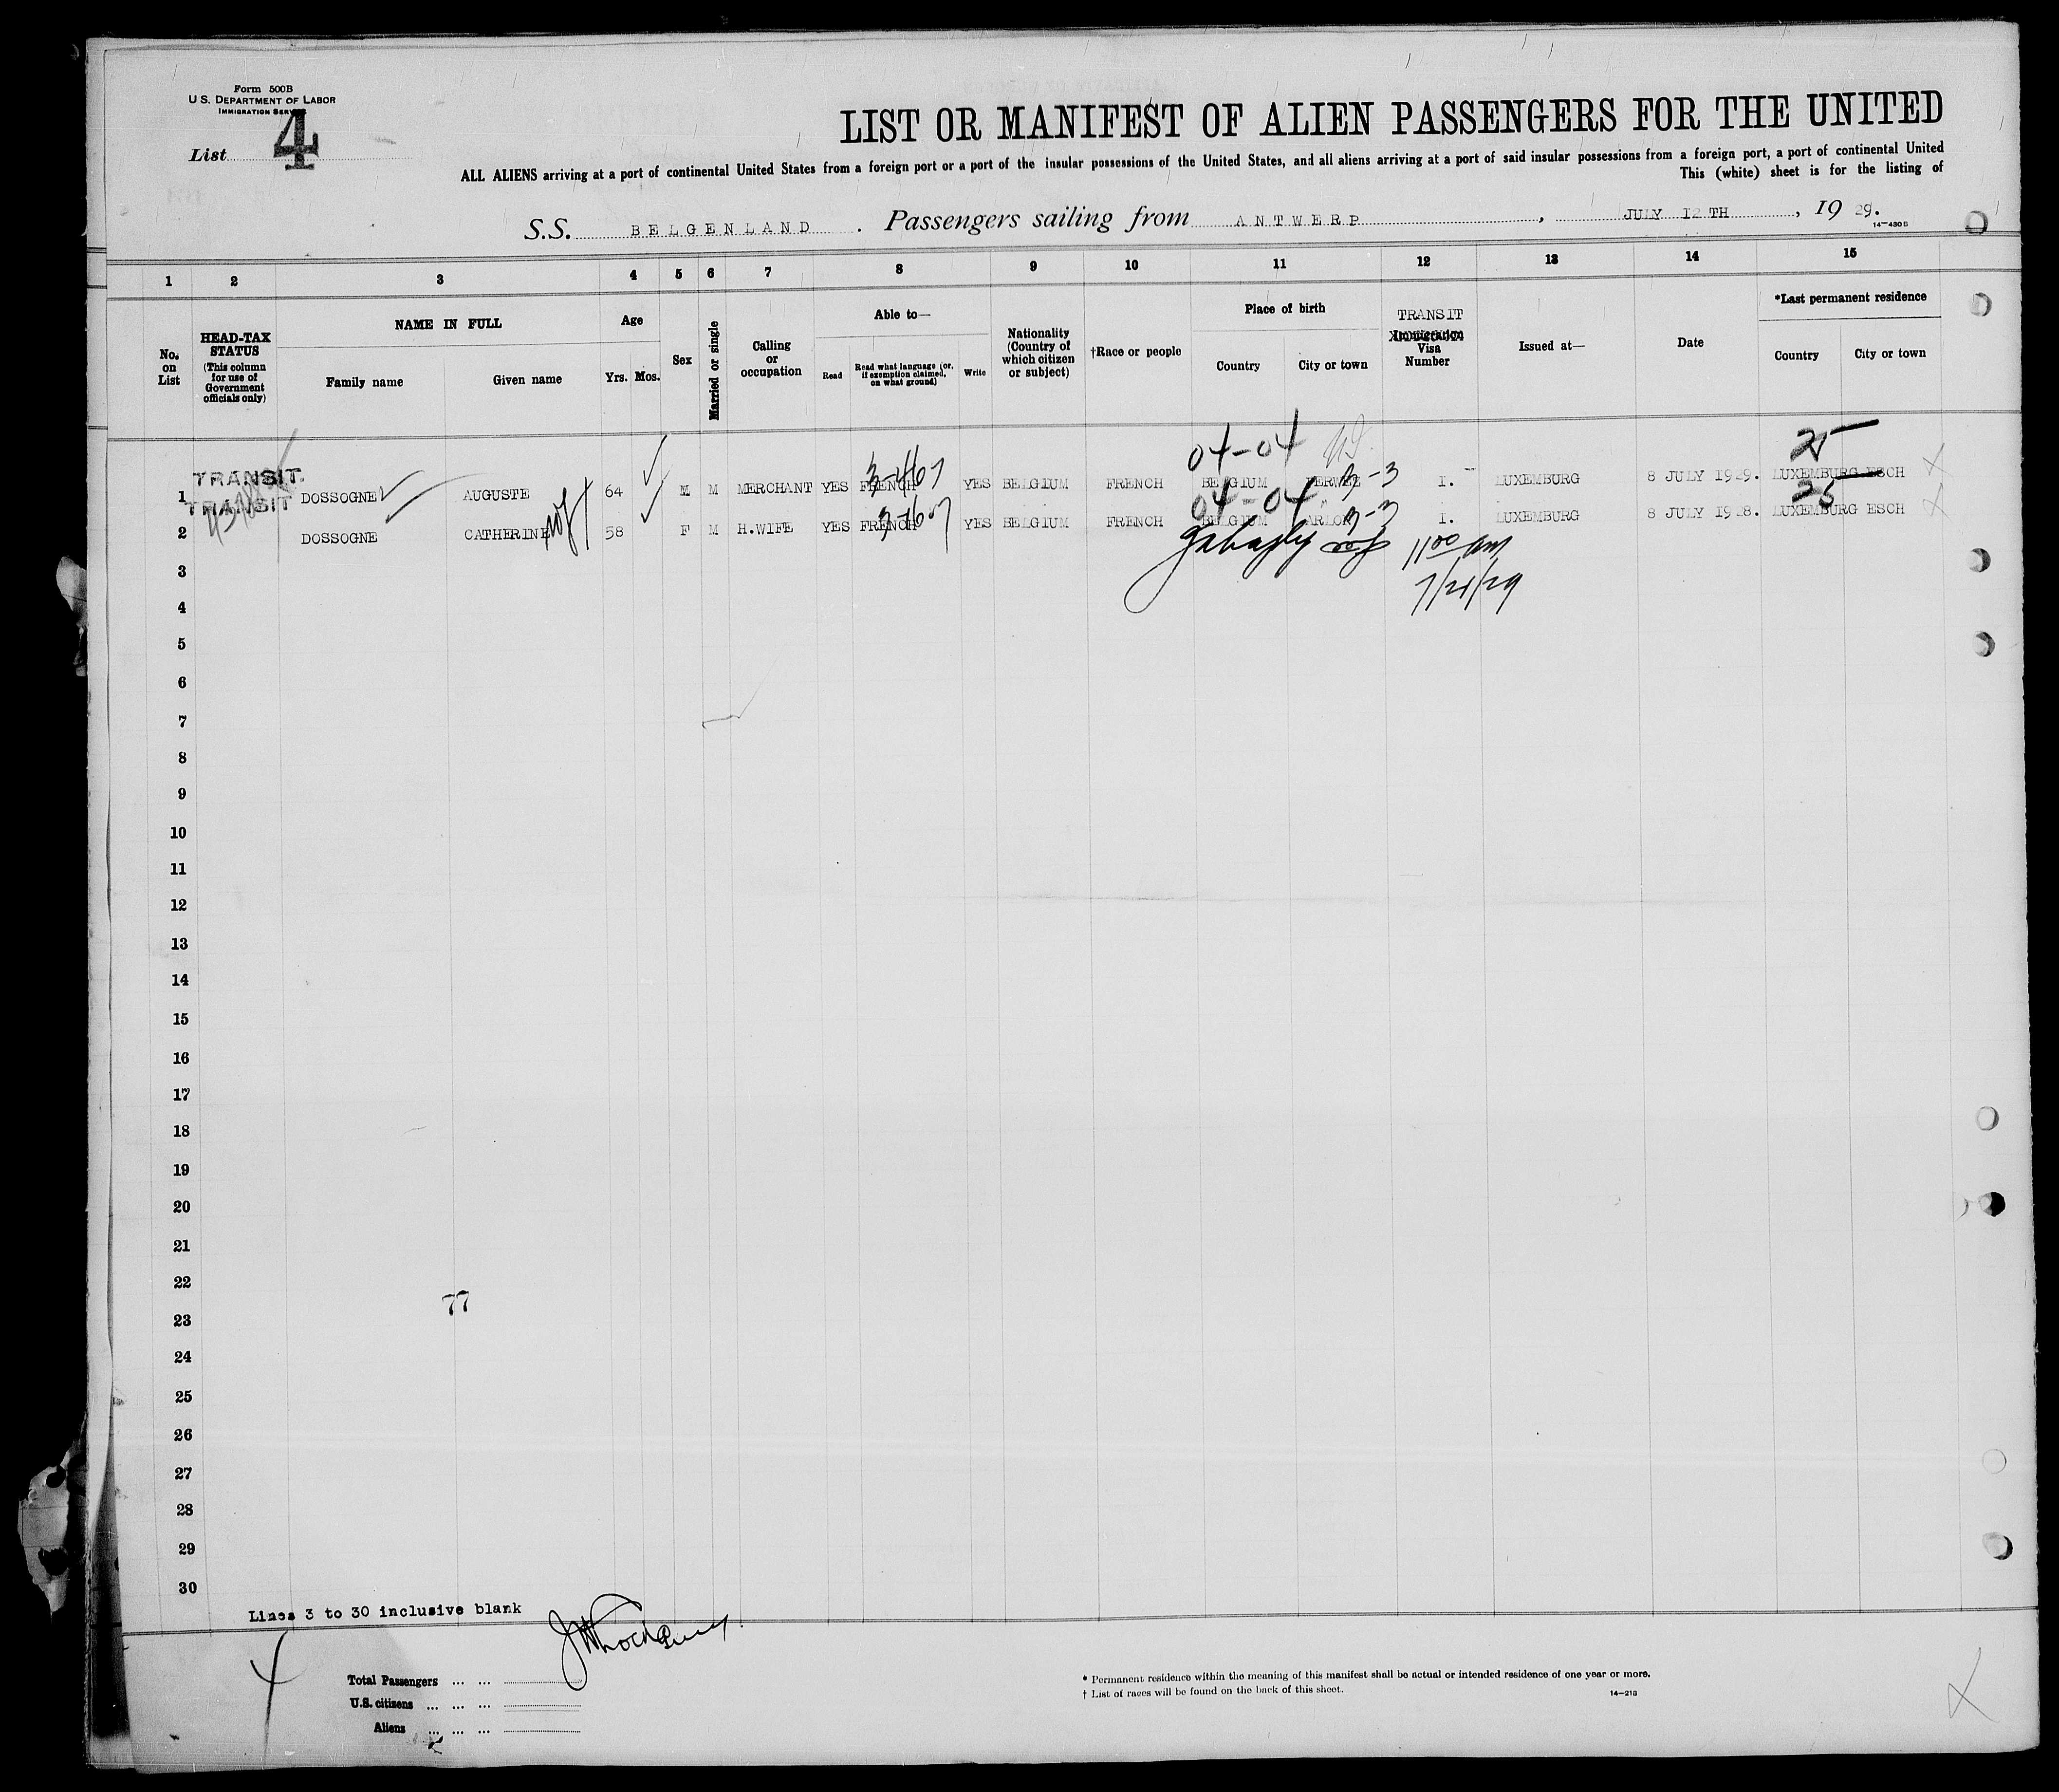 Form 500B
U.S. DEPARTMENT OF LABOR
IMMIGRATION SERVICE
List 4
LIST OR MANIFEST OF ALIEN PASSENGERS FOR THE UNITED
ALL ALIENS arriving at a port of continental United States from a foreign port or a port of the insular possessions of the United States, and all aliens arriving at a port of said insular possessions from a foreign port, a port of continental United
This (white) sheet is for the listing of
S.S. BELGENLAND. Passengers sailing from ANTWERP, JULY 12TH, 1929.
14-430B
1 2 3 4 5 6 7 8 9 10 11 12 13 14 15
No. on List
HEAD-TAX STATUS (This column for use of Government officials only)
NAME IN FULL
Family name
Given name
Age
Yrs. Mos.
Sex
Married or single
Calling or occupation
Able to—
Read
Read what language (or, if exemption claimed, on what ground)
Write
Nationality (Country of which citizen or subject)
†Race or people
Place of birth
Country
City or town
TRANSIT
Visa Number
Issued at—
Date
*Last permanent residence
Country
City or town
04-04 25
TRANSIT
1 DOSSOGNE AUGUSTE 64 M M MERCHANT YES FRENCH YES BELGIUM FRENCH BELGIUM 3-3 I. LUXEMBURG 8 JULY 1929. LUXEMBURG ESCH
TRANSIT 04-04 25
2 DOSSOGNE CATHERINE 58 F M H.WIFE YES FRENCH YES BELGIUM FRENCH BELGIUM ARLON 3-3 I. LUXEMBURG 8 JULY 1928. LUXEMBURG ESCH
11 00 am
3
7/21/29
4
5
6
7
8
9
10
11
12
13
14
15
16
17
18
19
20
21
22
77
23
24
25
26
27
28
29
30
Lines 3 to 30 inclusive blank
Total Passengers ... ...
U.S. citizens ... ... ...
Aliens ... ... ...
* Permanent residence within the meaning of this manifest shall be actual or intended residence of one year or more.
† List of races will be found on the back of this sheet.
14-218